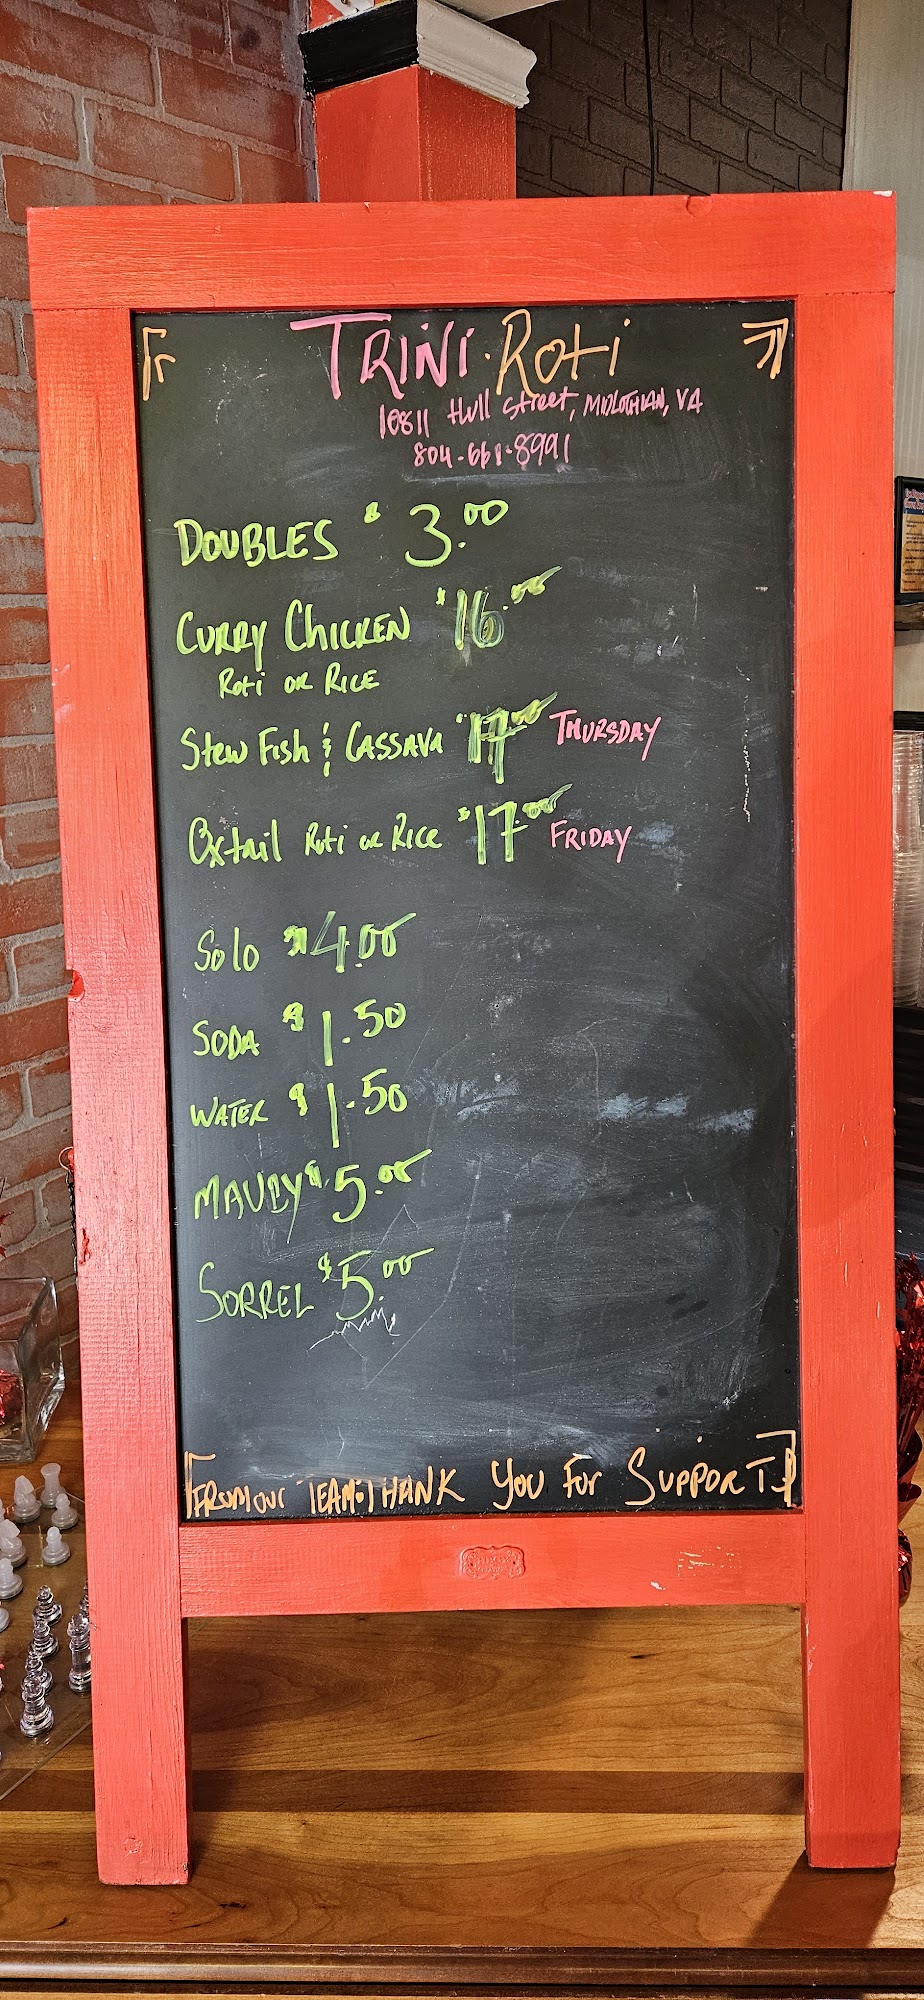 TRINI. Roti
10811 Hull Street, MIDLOTHIAN, VA
804-661-8991
DOUBLES $ 3.00
CURRY CHICKEN $16.00
Roti OR RICE
Stew Fish & CASSAVA $17.00 THURSDAY
Oxtail Roti or RICE $17.00 FRIDAY
Solo $4.00
SODA $1.50
WATER $1.50
MAUBY $5.00
SORREL $5.00
FROM OUR TEAM. THANK YOU For SUPPORT